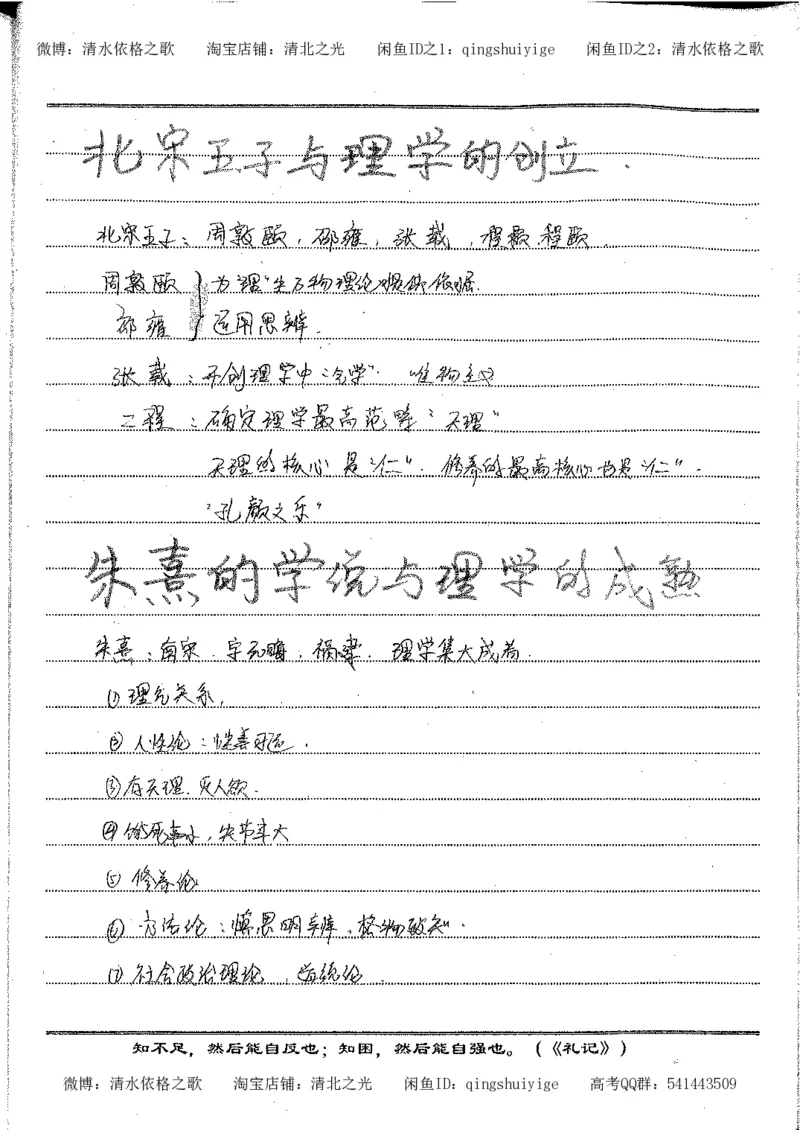 微博：清水依格之歌 淘宝店铺：清北之光 闲鱼ID之1：qingshuiyige 闲鱼ID之2：清水依格之歌
北宋五子与理学的创立．
北宋五子：周敦颐，邵雍，张载，程颢，程颐．
周敦颐 为"理"生万物理论提供依据．
邵雍 运用思辨．
张载：开创理学中"气学"． 唯物主义
二程：确定理学最高范畴"天理"
天理的核心是"仁"．修养的最高核心也是"仁"．
"孔颜之乐"
朱熹的学说与理学的成熟
朱熹：南宋．字元晦．福建．理学集大成者．
① 理气关系．
② 人性论：性善
③ 存天理．灭人欲．
④ 饿死事小，失节事大
⑤ 修养论
⑥ 方法论：慎思明辨，格物致知．
⑦ 社会政治理论，道统论．
知不足，然后能自反也；知困，然后能自强也。（《礼记》）
微博：清水依格之歌 淘宝店铺：清北之光 闲鱼ID：qingshuiyige 高考QQ群：541443509